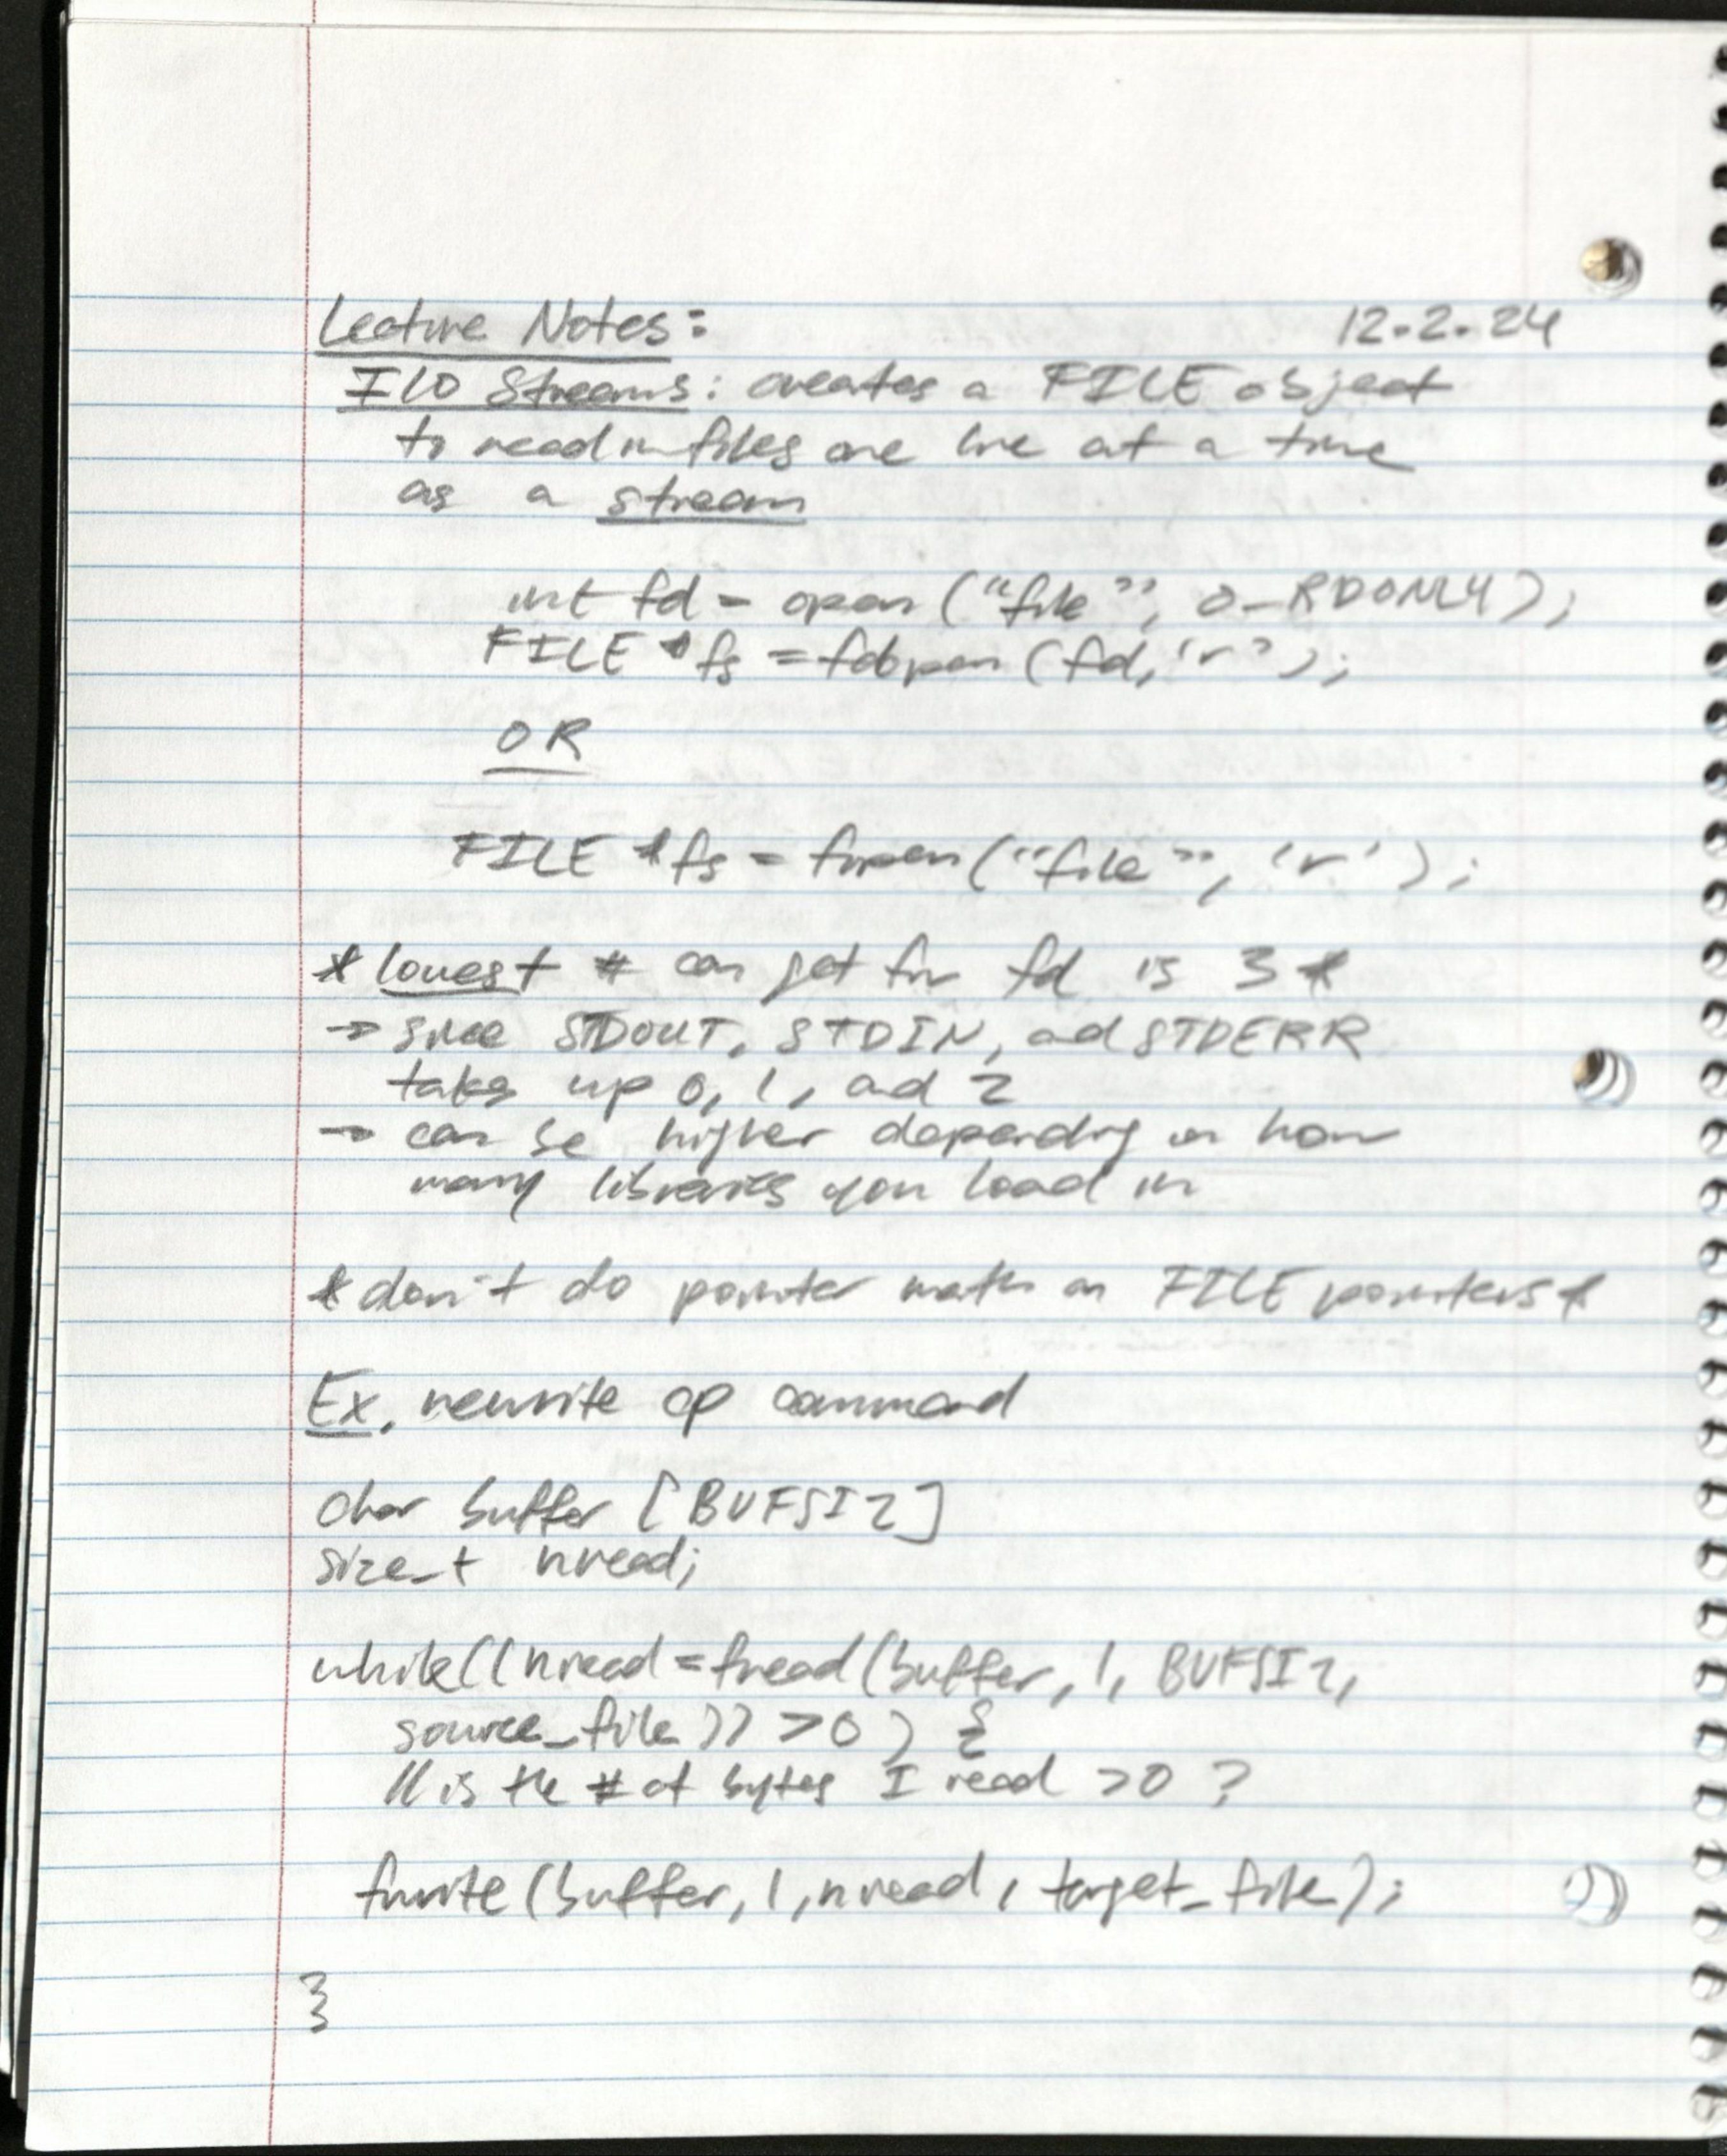 Lecture Notes: 12.2.24
I/O Streams: creates a FILE object
to read in files one line at a time
as a stream
int fd = open ("file", O_RDONLY);
FILE *fs = fdopen (fd, 'r');
OR
FILE *fs = fopen ("file", 'r');
* lowest # can get for fd is 3 *
→ since STDOUT, STDIN, and STDERR
takes up 0, 1, and 2
→ can be higher depending on how
many libraries you load in
* don't do pointer math on FILE pointers *
Ex. rewrite cp command
char buffer [BUFSIZ]
size_t nread;
while((nread = fread(buffer, 1, BUFSIZ,
source_file)) > 0 ) {
// is the # of bytes I read > 0 ?
fwrite (buffer, 1, nread, target_file);
}